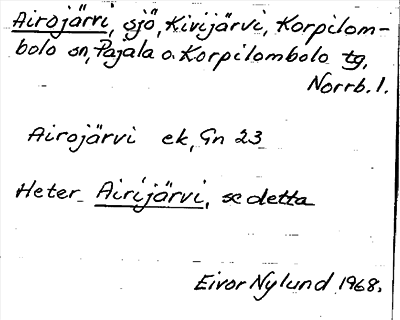 Airojärvi, sjö, Kivijärvi, Korpilom-
bolo sn, Pajala o. Korpilombolo tg,
Norrb. l.
Airojärvi ek, Gn 23
Heter Airijärvi, se detta
Eivor Nylund 1968.